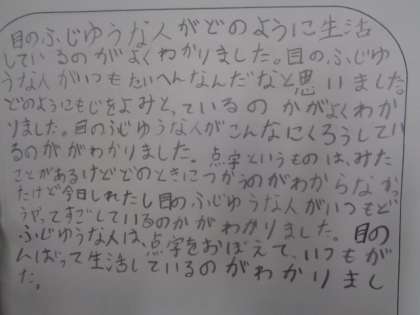 目のふじゆうな人がどのように生活
しているのがよくわかりました。目のふじゆ
うな人がいつもたいへんなんだなと思いました。
どのようにもじをよみと、ているのかがよくわか
りました。目のふじゆうな人がこんなにくろうしてい
るのががわかりました。点字というものは、みた
ことがあるけどどのときにつかうのがわからなかっ
たけど今日しれたし目のふじゆうな人がいつもど
うやってすごしているのかがわかりました。目の
ふじゆうな人は、点字をおぼえて、いつもが
んばって生活しているのがわかりまし
た。